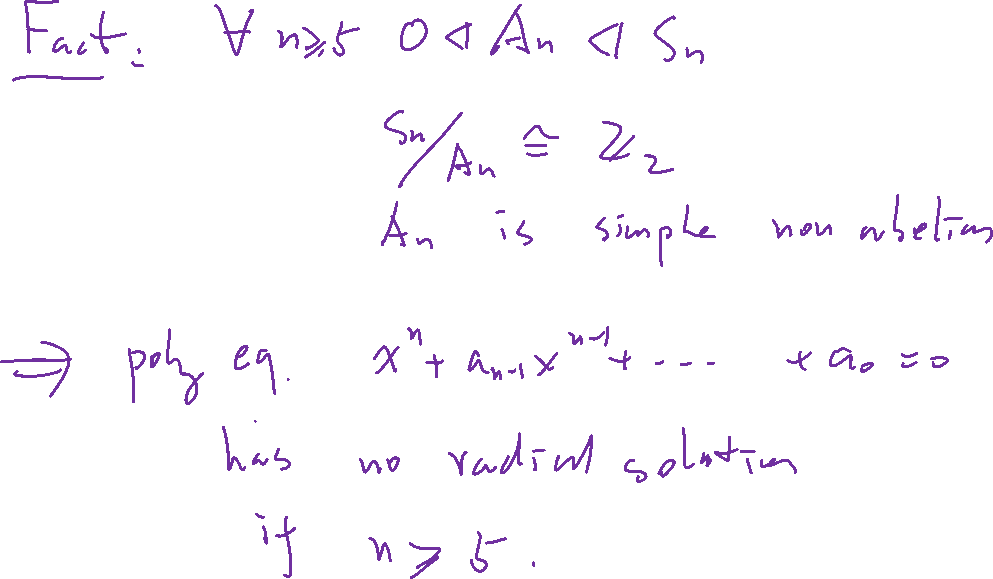 Fact: ∀ n≥5 0 ◁ An ◁ Sn
Sn/An ≅ ℤ2
An is simple non abelian
⇒ poly eq. x^n + a_{n-1}x^{n-1} + ---- + a0 = 0
has no radical solution
if n ≥ 5.